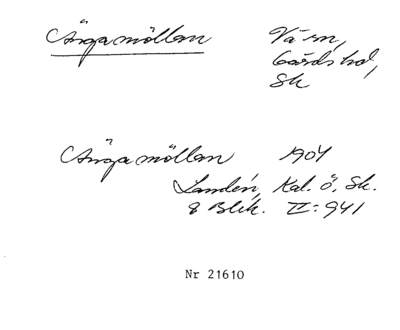 Ångamöllan Va sn,
Gärds hd,
Sk
Ångamöllan 1904
Landén, Kal. ö. Sk.
& Blek. II: 941
Nr 21610